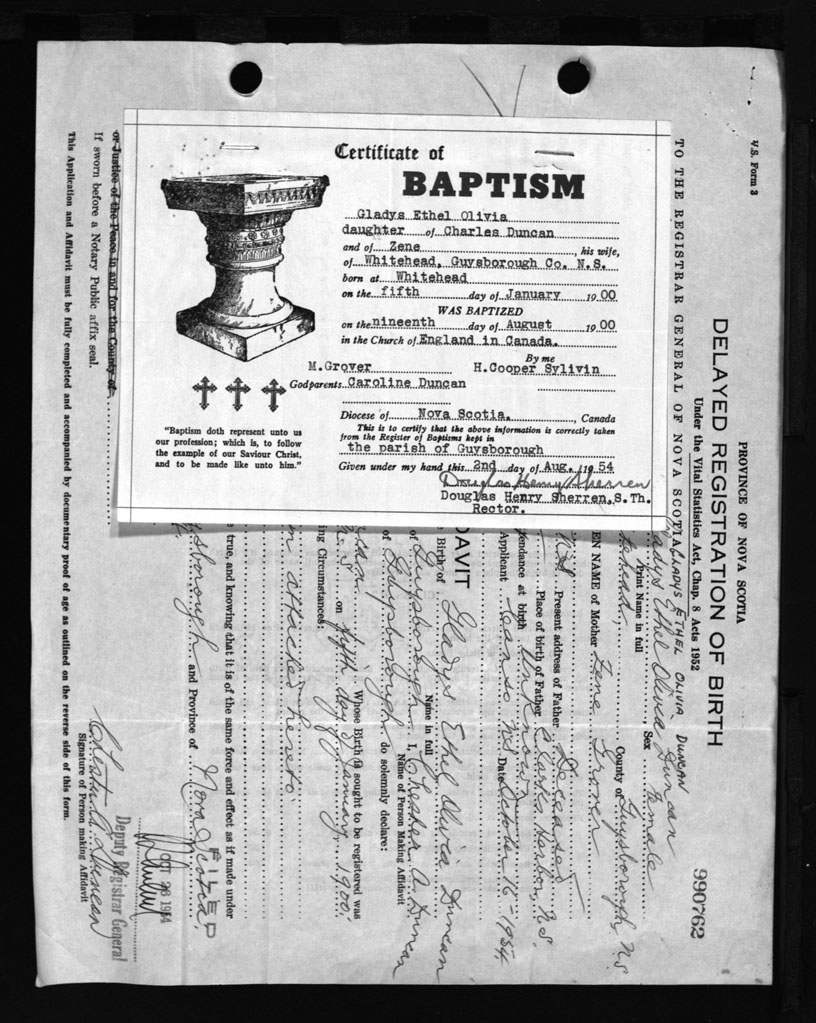 Certificate of
BAPTISM
Gladys Ethel Olivia
daughter of Charles Duncan
and of Zene, his wife,
of Whitehead, Guysborough Co. N.S.
born at Whitehead
on the fifth day of January 19 00
WAS BAPTIZED
on the nineenth day of August 19 00
in the Church of England in Canada.
By me
M.Grover H.Cooper Sylivin
Godparents Caroline Duncan
Diocese of Nova Scotia, Canada
This is to certify that the above information is correctly taken
from the Register of Baptisms kept in
the parish of Guysborough
Given under my hand this 2nd day of Aug. 19 54
Douglas Henry Sherren
Douglas Henry Sherren, S.Th.
Rector.
"Baptism doth represent unto us
our profession; which is, to follow
the example of our Saviour Christ,
and to be made like unto him."
V.S. Form 3
PROVINCE OF NOVA SCOTIA
DELAYED REGISTRATION OF BIRTH
990762
Under the Vital Statistics Act, Chap. 8 Acts 1952
TO THE REGISTRAR GENERAL OF NOVA SCOTIA
GLADYS ETHEL OLIVIA DUNCAN
Gladys Ethel Olivia Duncan
Print Name in full Sex Female
County of Guysborough, N.S.
EN NAME of Mother Zene Grover
N.S. Present address of Father Deceased
Place of birth of Father Charles Harbor, N.S.
endance at birth Unknown
Applicant Canso N.S. Date October 16 - 1954
DAVIT
Birth of Gladys Ethel Olivia Duncan
Name in full
of Guysborough I, Chester A. Duncan
Name of Person Making Affidavit
of Guysborough do solemnly declare:
Whose Birth is sought to be registered was
N.S. on fifth day January, 1900.
ing Circumstances:
attached hereto.
e true, and knowing that it is of the same force and effect as if made under
sborough and Province of Nova Scotia,
FILED
OCT 26 1954
Deputy Registrar General
Chester A Duncan
Signature of Person making Affidavit
or Justice of the Peace in and for the County of
If sworn before a Notary Public affix seal.
This Application and Affidavit must be fully completed and accompanied by documentary proof of age as outlined on the reverse side of this form.